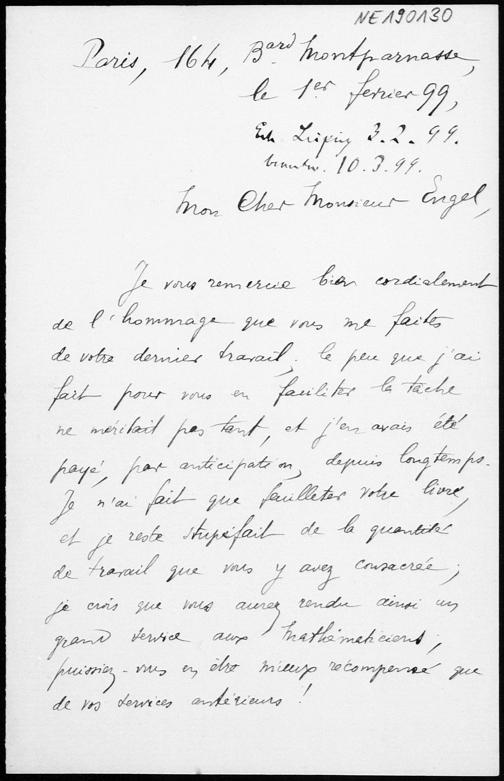 NE190130
Paris, 164, Bard Montparnasse,
le 1er fevrier 99,
Erh. Leipzig 3.2.99.
beantw. 10.3.99.
Mon Cher Monsieur Engel,
Je vous remercie bien cordialement
de l'hommage que vous me faites
de votre dernier travail; le peu que j'ai
fait pour vous en faciliter la tâche
ne méritait pas tant, et j'en avais été
payé, par anticipation, depuis longtemps.
Je n'ai fait que feuilleter votre livre,
et je reste stupéfait de la quantité
de travail que vous y avez consacrée;
je crois que vous aurez rendu ainsi un
grand service aux mathématiciens;
puissiez-vous en être mieux récompensé que
de vos services antérieurs!